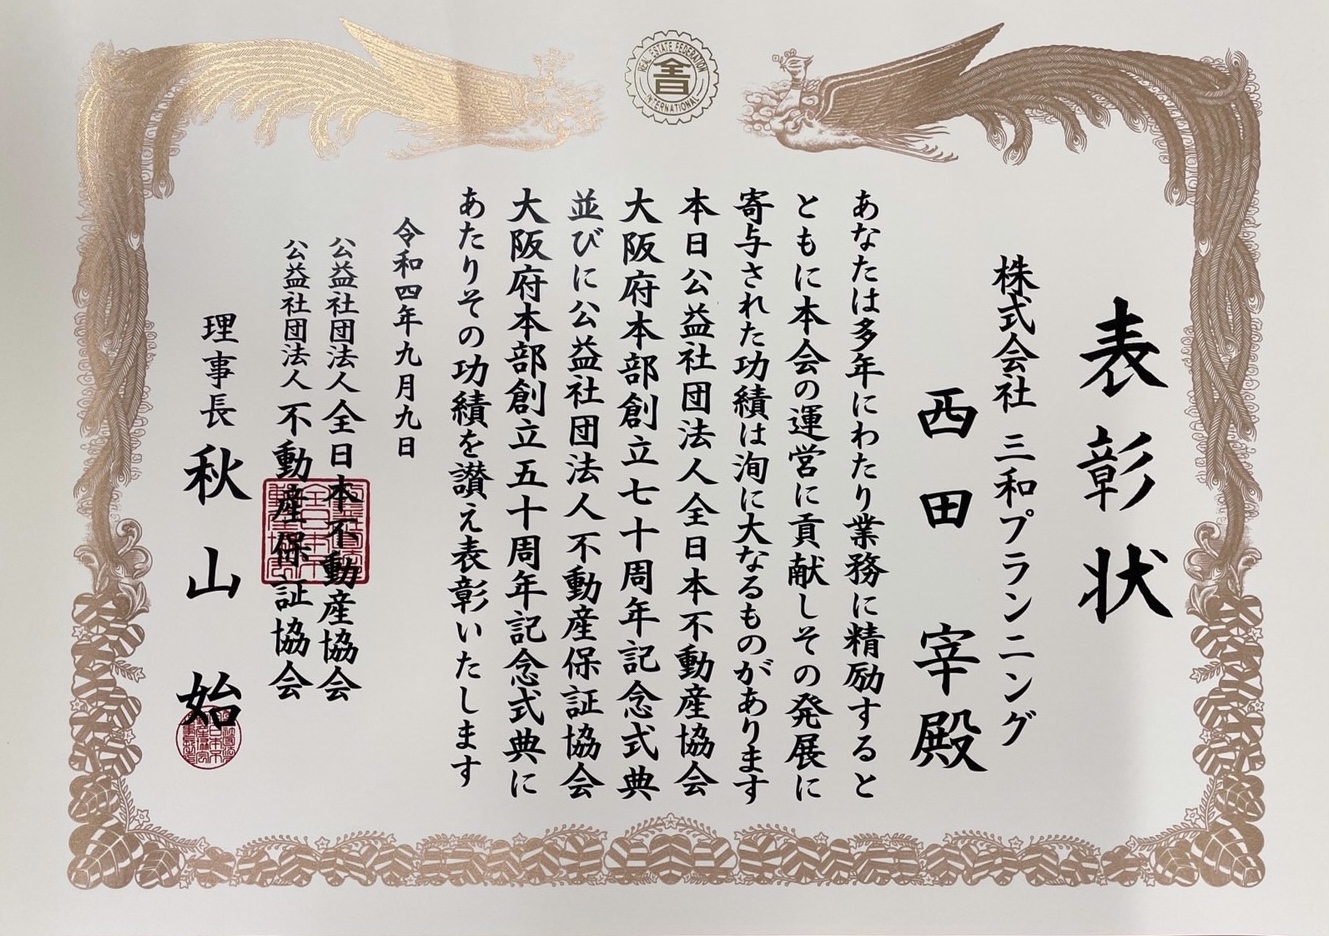 REAL ESTATE FEDERATION
INTERNATIONAL
表彰状
株式会社 三和プランニング
西田 宰殿
あなたは多年にわたり業務に精励すると
ともに本会の運営に貢献しその発展に
寄与された功績は洵に大なるものがあります
本日公益社団法人全日本不動産協会
大阪府本部創立七十周年記念式典
並びに公益社団法人不動産保証協会
大阪府本部創立五十周年記念式典に
あたりその功績を讃え表彰いたします
令和四年九月九日
公益社団法人全日本不動産協会
公益社団法人不動産保証協会
理事長 秋山 始